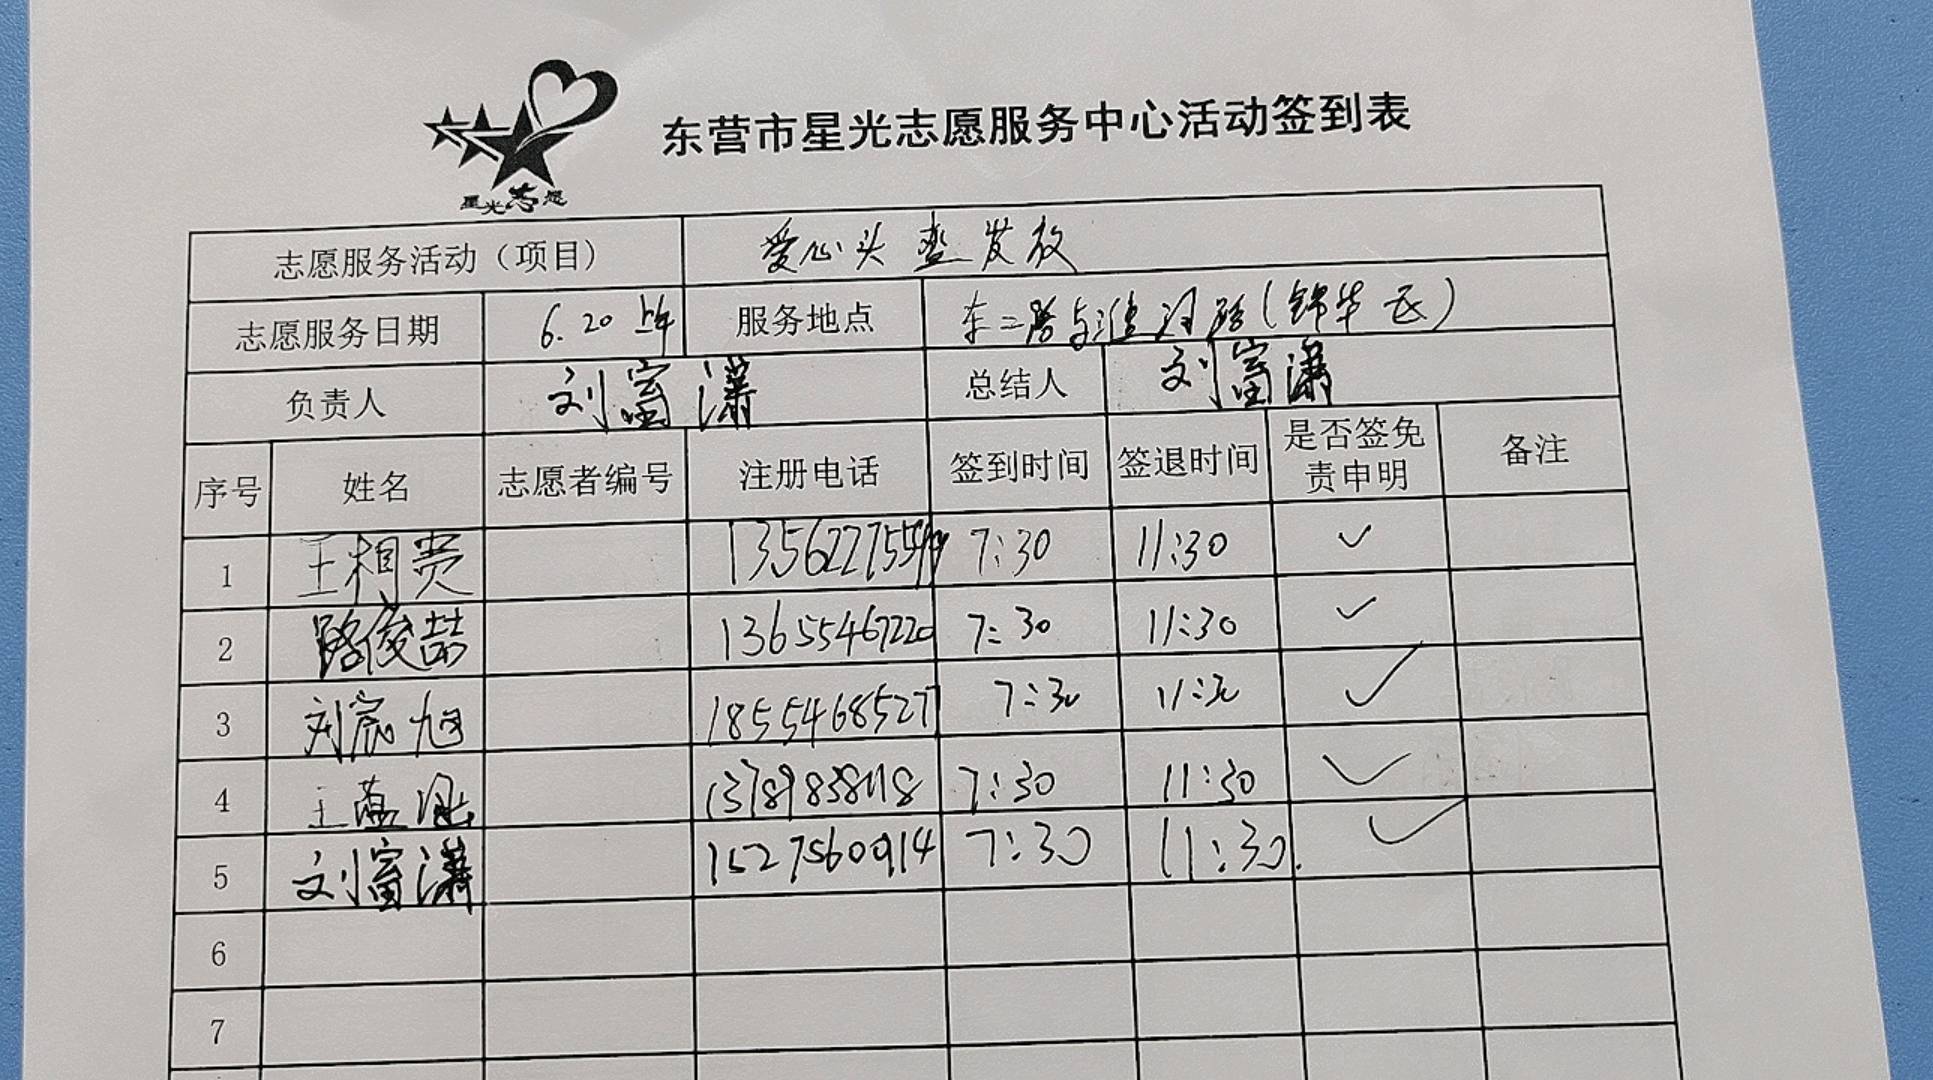 星光志愿
东营市星光志愿服务中心活动签到表
志愿服务活动（项目） 爱心头盔发放
志愿服务日期 6.20 上午 服务地点 东二路与淮河路(锦华 )
负责人 刘富潇 总结人 刘富潇
序号 姓名 志愿者编号 注册电话 签到时间 签退时间 是否签免责申明 备注
1 王相贵 7:30 11:30 ✓
2 路俊喆 13655467220 7:30 11:30 ✓
3 刘宸旭 18554685277 7:30 11:30 ✓
4 王蕴 7:30 11:30 ✓
5 刘富潇 15275600914 7:30 11:30. ✓
6
7